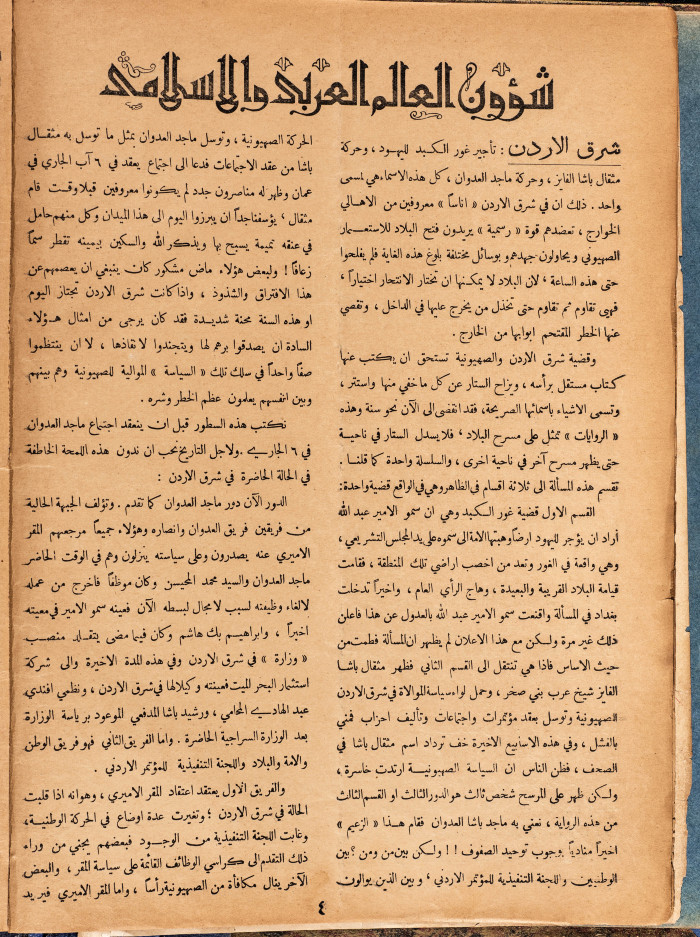 شؤون العالم العربي والاسلامي
شرق الاردن : تأجير غور الكبد لليهود ، وحركة
مثقال باشا الفايز ، وحركة ماجد العدوان ، كل هذه الاسماء هي لمسمى
واحد . ذلك ان في شرق الاردن « اناساً » معروفين من الاهالي
الخوارج ، تعضدهم قوة « رسمية » يريدون فتح البلاد للاستعمار
الصهيوني ويحاولون جهدهم بوسائل مختلفة بلوغ هذه الغاية فلم يفلحوا
حتى هذه الساعة ‘ لان البلاد لا يمكنها ان تختار الانتحار اختياراً ‘
فهي تقاوم ثم تقاوم حتى تخذل من يخرج عليها في الداخل ، وتقصي
عنها الخطر المقتحم ابوابها من الخارج .
وقضية شرق الاردن والصهيونية تستحق ان يكتب عنها
كتاب مستقل برأسه ، ويزاح الستار عن كل ما خفي منها واستتر ،
وتسمى الاشياء باسمائها الصريحة، فقد انقضى الى الآن نحو سنة وهذه
« الروايات » تمثل على مسرح البلاد ‘ فلا يسدل الستار في ناحية
حتى يظهر مسرح آخر في ناحية اخرى ، والسلسلة واحدة كما قلنا .
تقسيم هذه المسألة الى ثلاثة اقسام في الظاهر وهي في الواقع قضية واحدة:
القسم الاول قضية غور الكبد وهي ان سمو الامير عبد الله
أراد ان يؤجر لليهود ارضاً وهبتها الامة الى سموه على يد المجلس التشريعي ،
وهي واقعة في الغور وتعد من اخصب اراضي تلك المنطقة ، فقامت
قيامة البلاد القريبة والبعيدة ، وهاج الرأي العام ، واخيراً تدخلت
بغداد في المسألة واقنعت سمو الامير عبد الله بالعدول عن هذا فاعلن
ذلك غير مرة ولكن مع هذا الاعلان لم يظهر ان المسألة فطمت من
حيث الاساس فاذا هي تنتقل الى القسم الثاني فظهر مثقال باشا
الفايز شيخ عرب بني صخر ، وحمل لواء سياسة الموالاة في شرق الاردن
للصهيونية وتوسل بعقد مؤتمرات واجتماعات وتأليف احزاب فمني
بالفشل ، وفي هذه الاسابيع الاخيرة خف ترداد اسم مثقال باشا في
الصحف ، فظن الناس ان السياسة الصهيونية ارتدت خاسرة ،
ولكن ظهر على المرسح شخص ثالث هو الدور الثالث او القسم الثالث
من هذه الرواية ، نعني به ماجد باشا العدوان فقام هذا « الزعيم »
اخيراً منادياً بوجوب توحيد الصفوف !! ولكن بين من ومن ؟ بين
الوطنيين واللجنة التنفيذية للمؤتمر الاردني ‘ وبين الذين يوالون
الحركة الصهيونية ، وتوسل ماجد العدوان بمثل ما توسل به مثقال
باشا من عقد الاجتماعات فدعا الى اجتماع يعقد في ٦ آب الجاري في
عمان وظهر له مناصرون جدد لم يكونوا معروفين قبلا وقت قام
مثقال ‘ يؤسفنا جداً ان يبرزوا اليوم الى هذا الميدان وكل منهم حامل
في عنقه تميمة يسبح بها ويذكر الله والسكين بيمينه تقطر سماً
زعافاً ! ولبعض هؤلاء ماض مشكور كان ينبغي ان يعصمهم عن
هذا الافتراق والشذوذ ، واذا كانت شرق الاردن تجتاز اليوم
او هذه السنة محنة شديدة فقد كان يرجى من امثال هؤلاء
السادة ان يصدقوا برهم لها ويتجندوا لانقاذها ، لا ان ينتظموا
صفاً واحداً في سلك تلك « السياسة » الموالية للصهيونية وهم بينهم
وبين انفسهم يعلمون عظم الخطر وشره .
نكتب هذه السطور قبل ان ينعقد اجتماع ماجد العدوان
في ٦ الجاري . ولاجل التاريخ نحب ان ندون هذه اللمحة الخاطفة
في الحالة الحاضرة في شرق الاردن :
الدور الآن دور ماجد العدوان كما تقدم . وتؤلف الجبهة الحالية
من فريقين فريق العدوان وانصاره وهؤلاء جميعاً مرجعهم المقر
الاميري عنه يصدرون وعلى سياسته ينزلون وهم في الوقت الحاضر
ماجد العدوان والسيد محمد المحيسن وكان موظفاً فاخرج من عمله
لالغاء وظيفته لسبب لا مجال لبسطه الآن فعينه سمو الامير في معيته
اخيراً ، وابراهيم بك هاشم وكان فيما مضى يتقلد منصب
« وزارة » في شرق الاردن وفي هذه المدة الاخيرة والى شركة
استثمار البحر الميت فعينته وكيلا لها في شرق الاردن ، ونظمي افندي
عبد الهادي المحامي ، ورشيد باشا المدفعي الموعود برياسة الوزارة
بعد الوزارة السراجية الحاضرة . واما الفريق الثاني فهو فريق الوطن
والامة والبلاد واللجنة التنفيذية للمؤتمر الاردني .
والفريق الاول يعتقد اعتقاد المقر الاميري ، وهوانه اذا قلبت
الحالة في شرق الاردن ‘ وتغيرت عدة اوضاع في الحركة الوطنية،
وغابت اللجنة التنفيذية من الوجود فبعضهم يجني من وراء
ذلك التقدم الى كراسي الوظائف القائمة على سياسة المقر ، والبعض
الآخر ينال مكافأة من الصهيونية رأساً ، واما المقر الاميري فيريد
٤